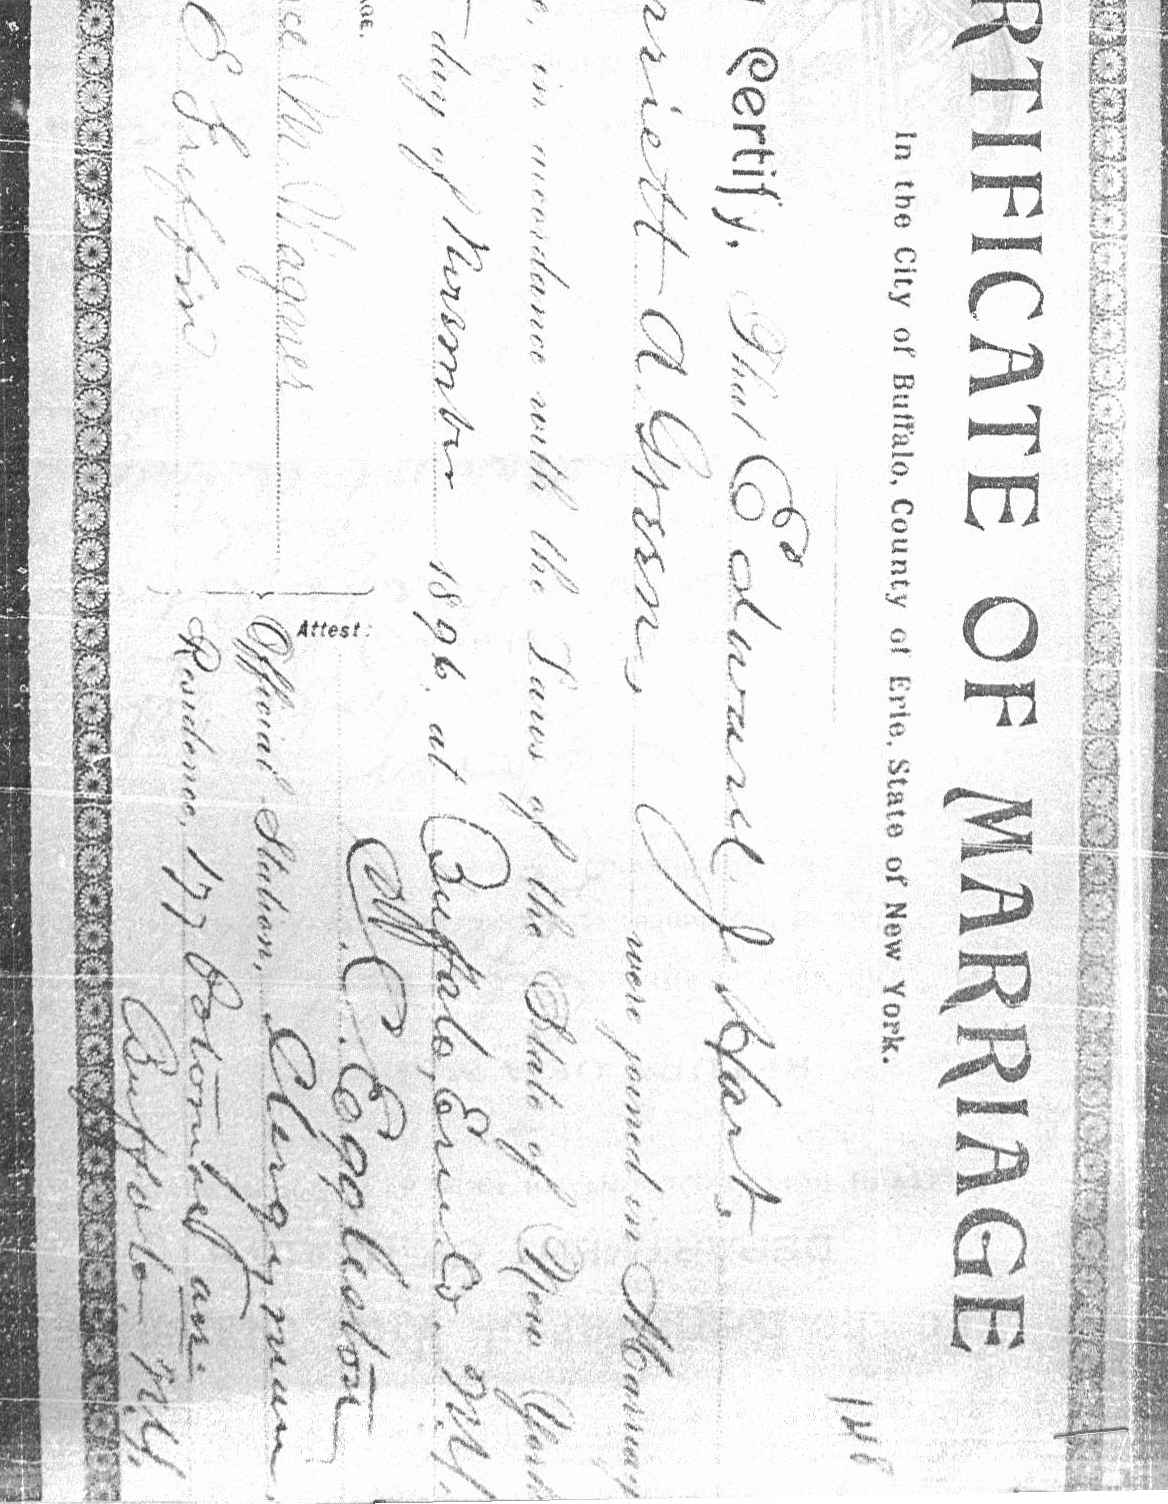 RTIFICATE OF MARRIAGE
In the City of Buffalo, County of Erie, State of New York.
146
Certify, That Edward J. Hart,
rriett A. Green, were joined in Marriag
e, in accordance with the Laws of the State of New York
day of November 1896, at Buffalo, Erie Co. N.Y.
AGE.
Attest: C. Eggleston
M. Wagner
Official Station, Clergyman,
E Griffin
Residence, 177 Potomac av.
Buffalo N.Y.